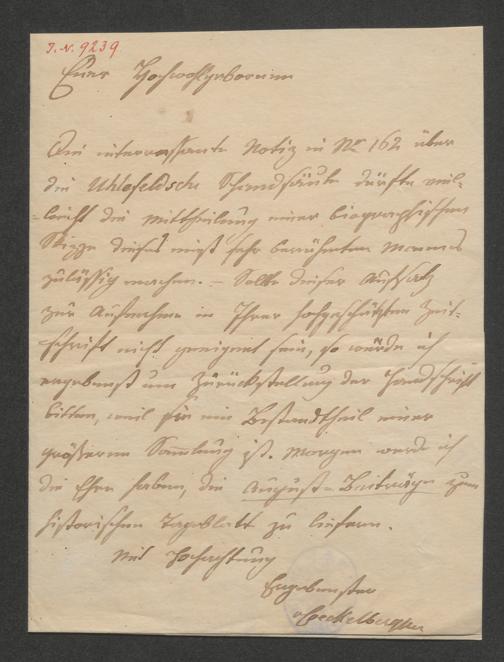 I. N. 9239
Euer Hochwohlgeboren
Die interessante Notiz in No 162 über
die Uhlefeldsche Schandsäule dürfte viel-
leicht die Mittheilung einer biographischen
Skizze dieses nicht sehr berühmten Mannes
zulässig machen. – Sollte dieser Aufsatz
zur Aufnahme in Ihrer hochgeschätzten Zeit-
schrift nicht geeignet sein, so würde ich
ergebenst um Zurückstellung der Handschrift
bitten, weil sie ein Bestandtheil einer
größeren Sammlung ist. Morgen werde ich
die Ehre haben, die August-Beiträge zum
historischen Tageblatt zu liefern.
Mit Hochachtung
Ergebenster